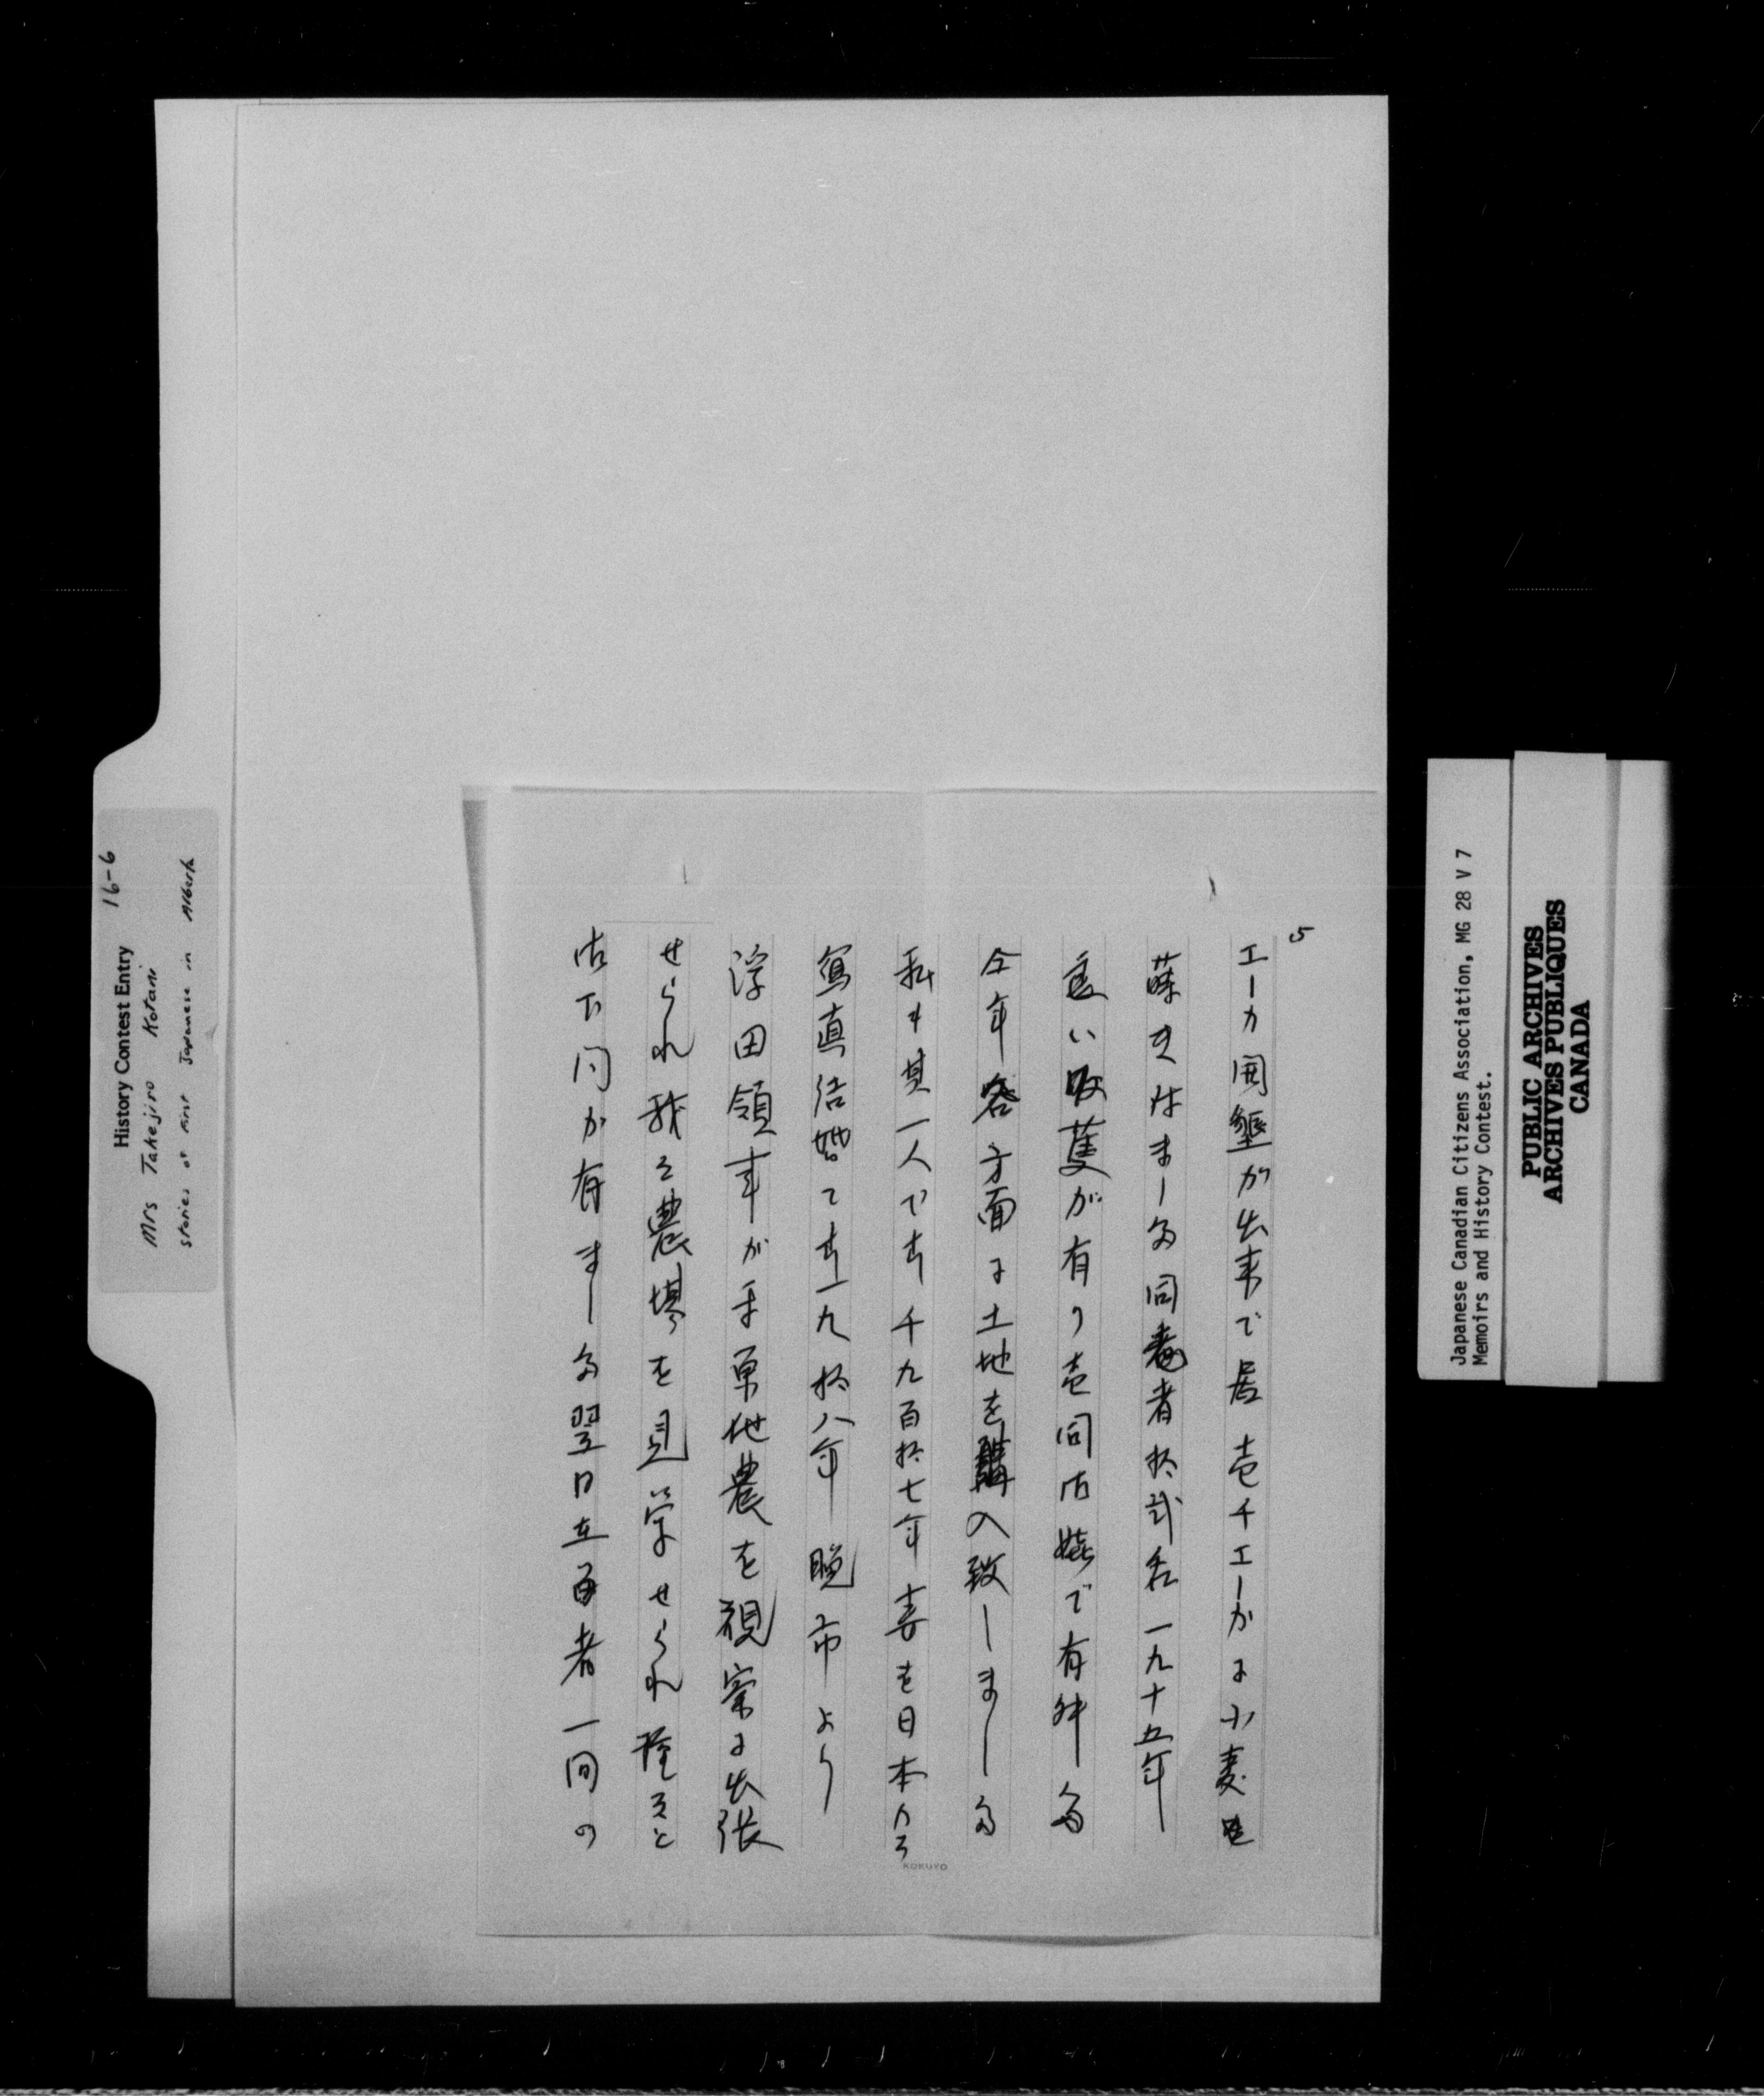 5
エーカ開墾が出来で居 壱千エーカに小麦
蒔き付まーた同者拾弐名一九十五年
良い収獲が有り壱同御嬉で有升た
今年各方面に土地を購入致しました
私も其一人です千九百拾七年妻を日本から
写真結婚です一九拾八年 晩市より
浮田領事が手原他農を視察に出張
せられ我々農場を見学せられ種々と
御下問が有ました翌日在留者一同の
KOKUYO
History Contest Entry 16-6
Mrs Takejiro Kotani
stories of first Japanese in Alberta
Japanese Canadian Citizens Association, MG 28 V 7
Memoirs and History Contest.
PUBLIC ARCHIVES
ARCHIVES PUBLIQUES
CANADA